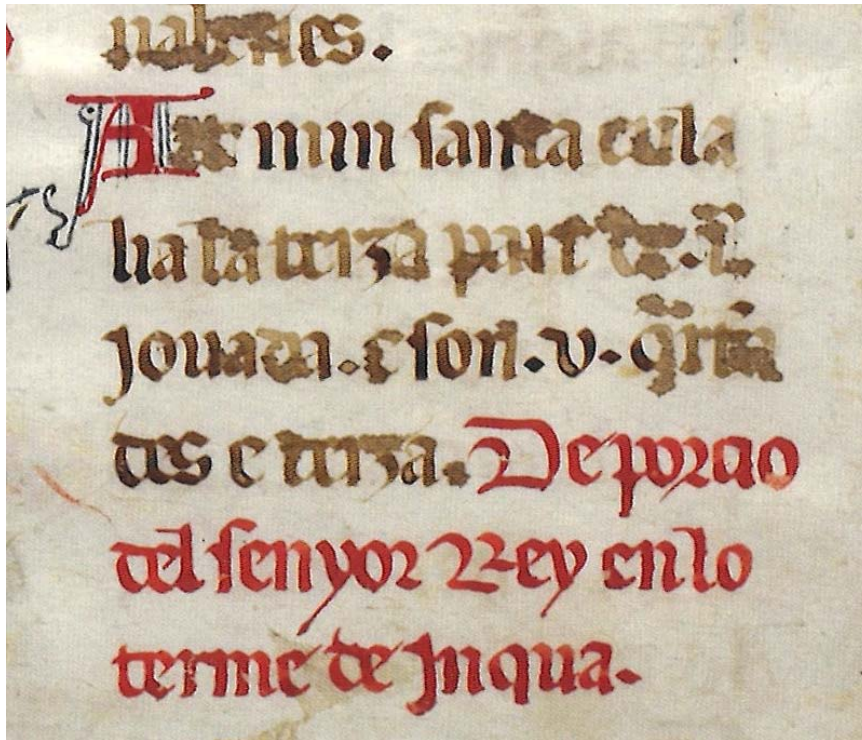 min santa eula
lia la terza part de .i.
jouada . e son . v . q̃rta
des e terza. De porcio
del senyor Rey en lo
terme de Inqua.